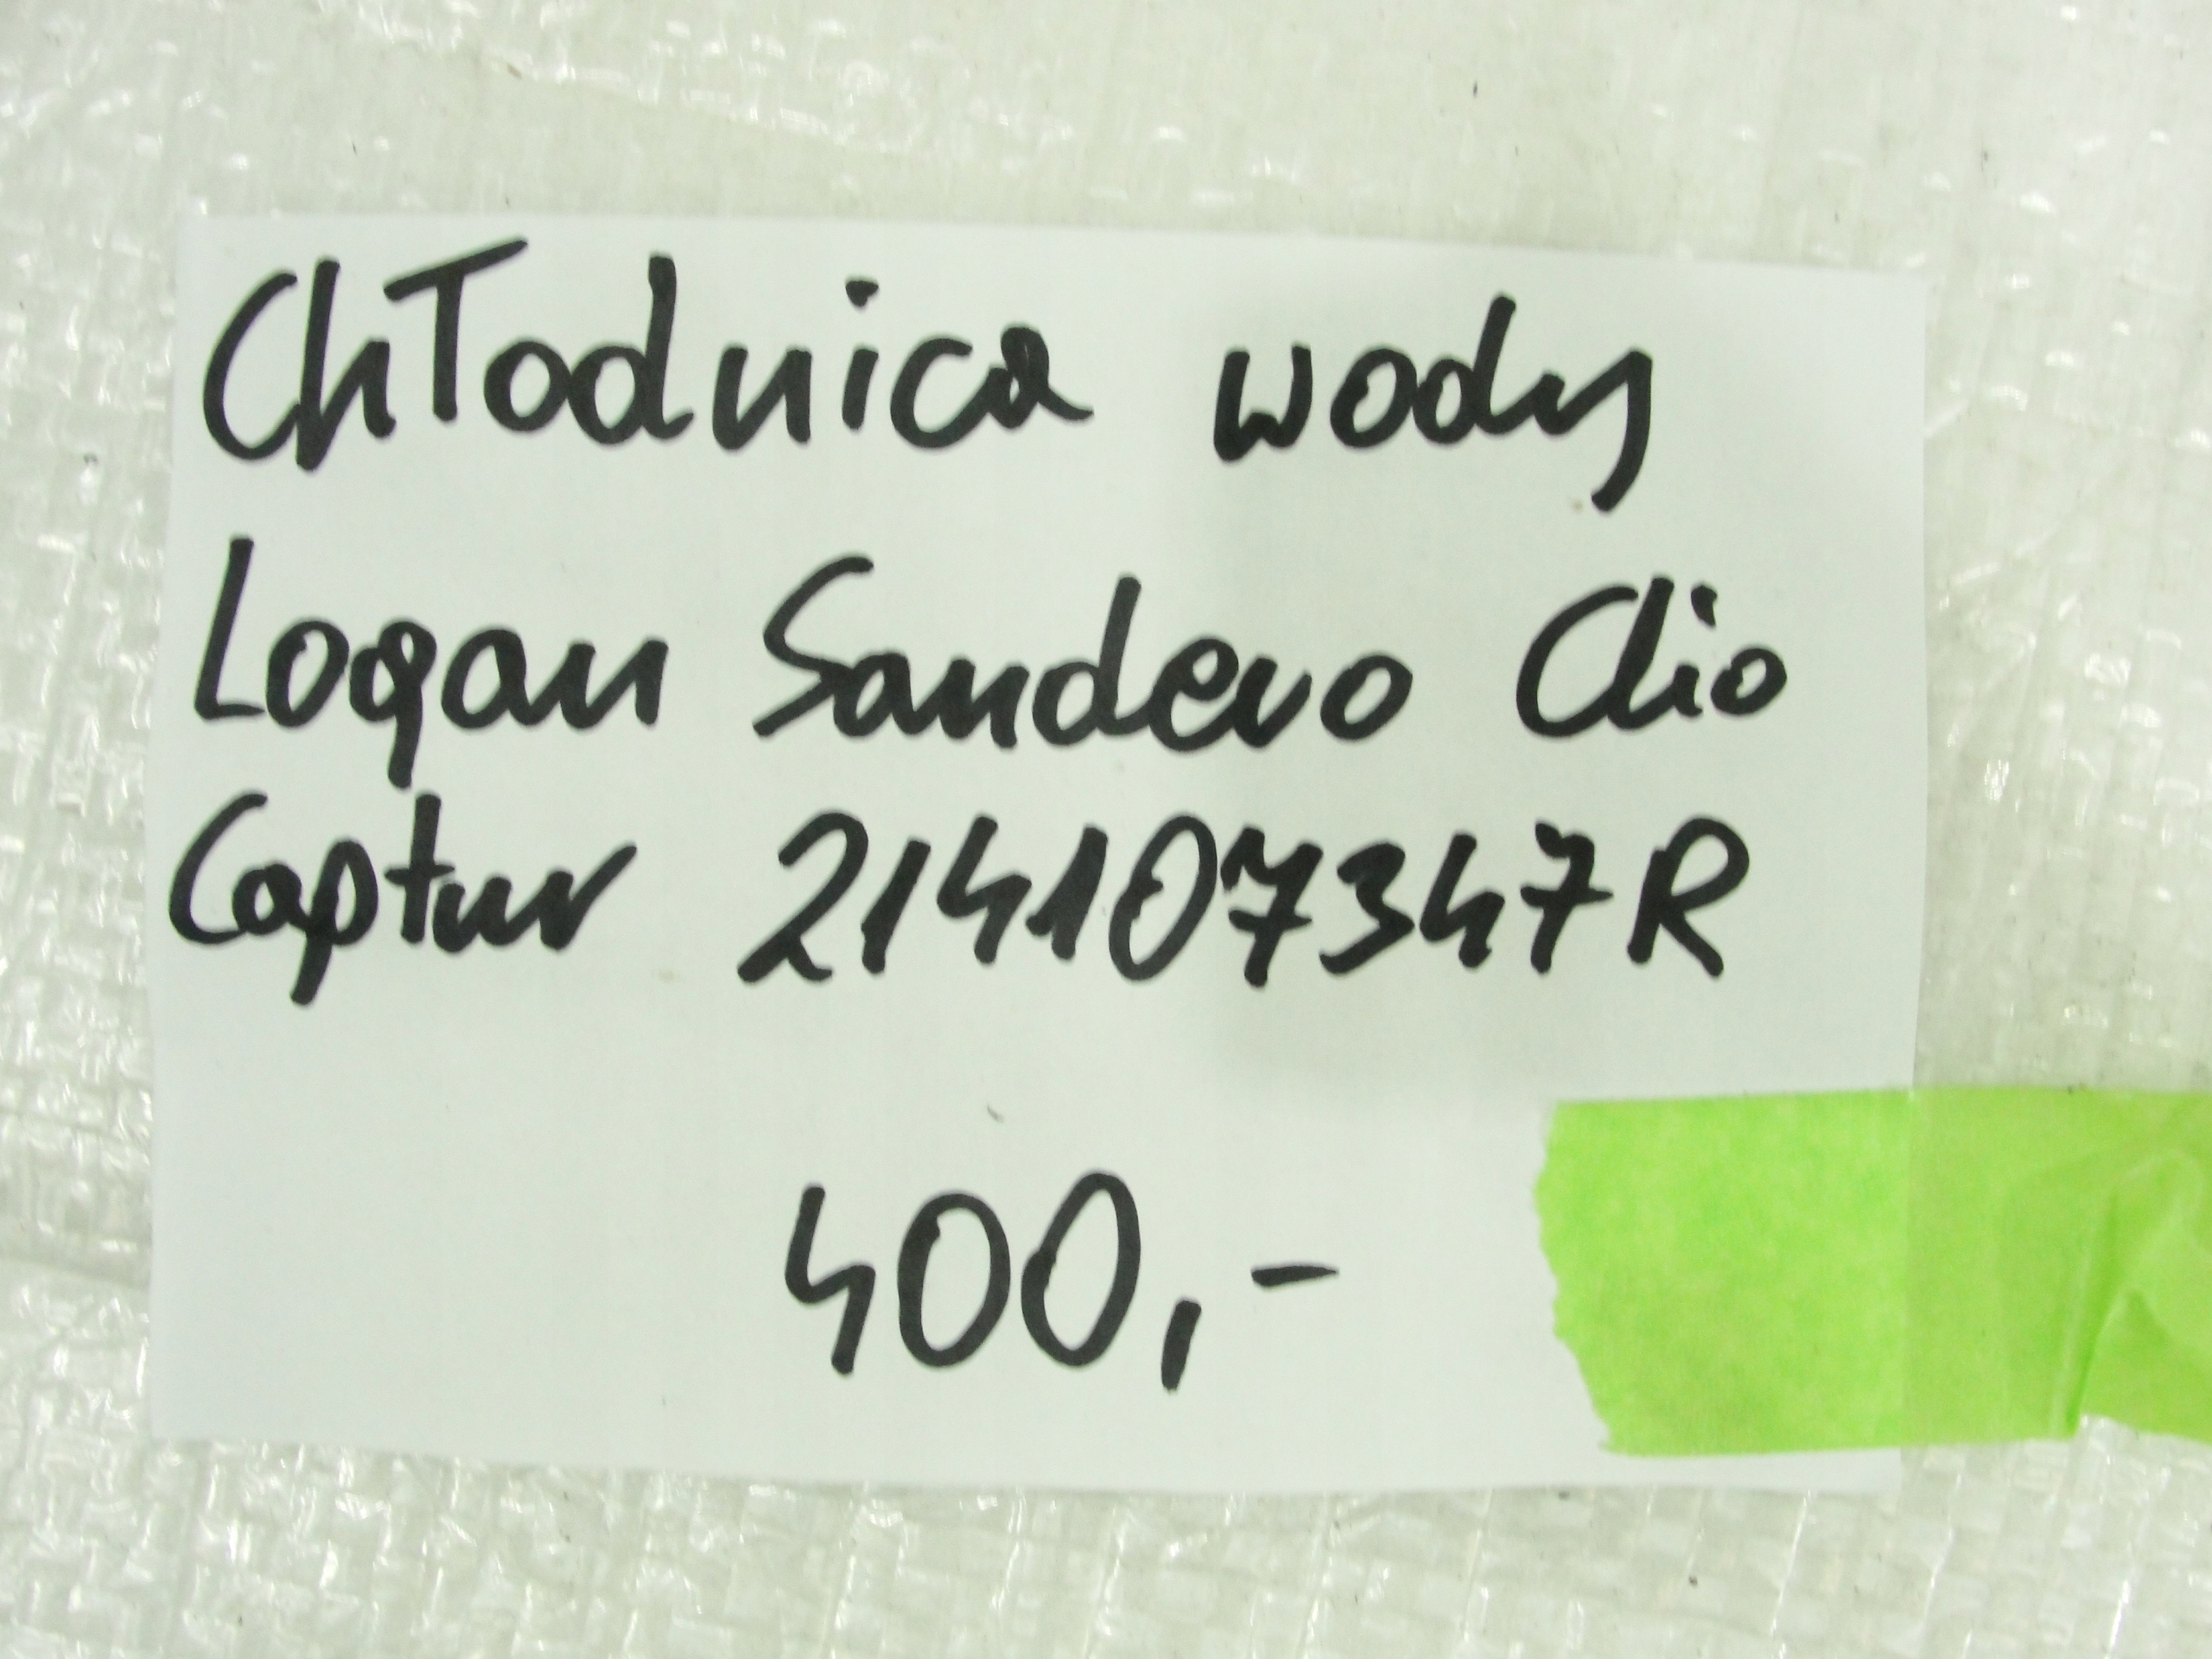 Chłodnica wody
Logan Sandero Clio
Captur 214107347R
400,-